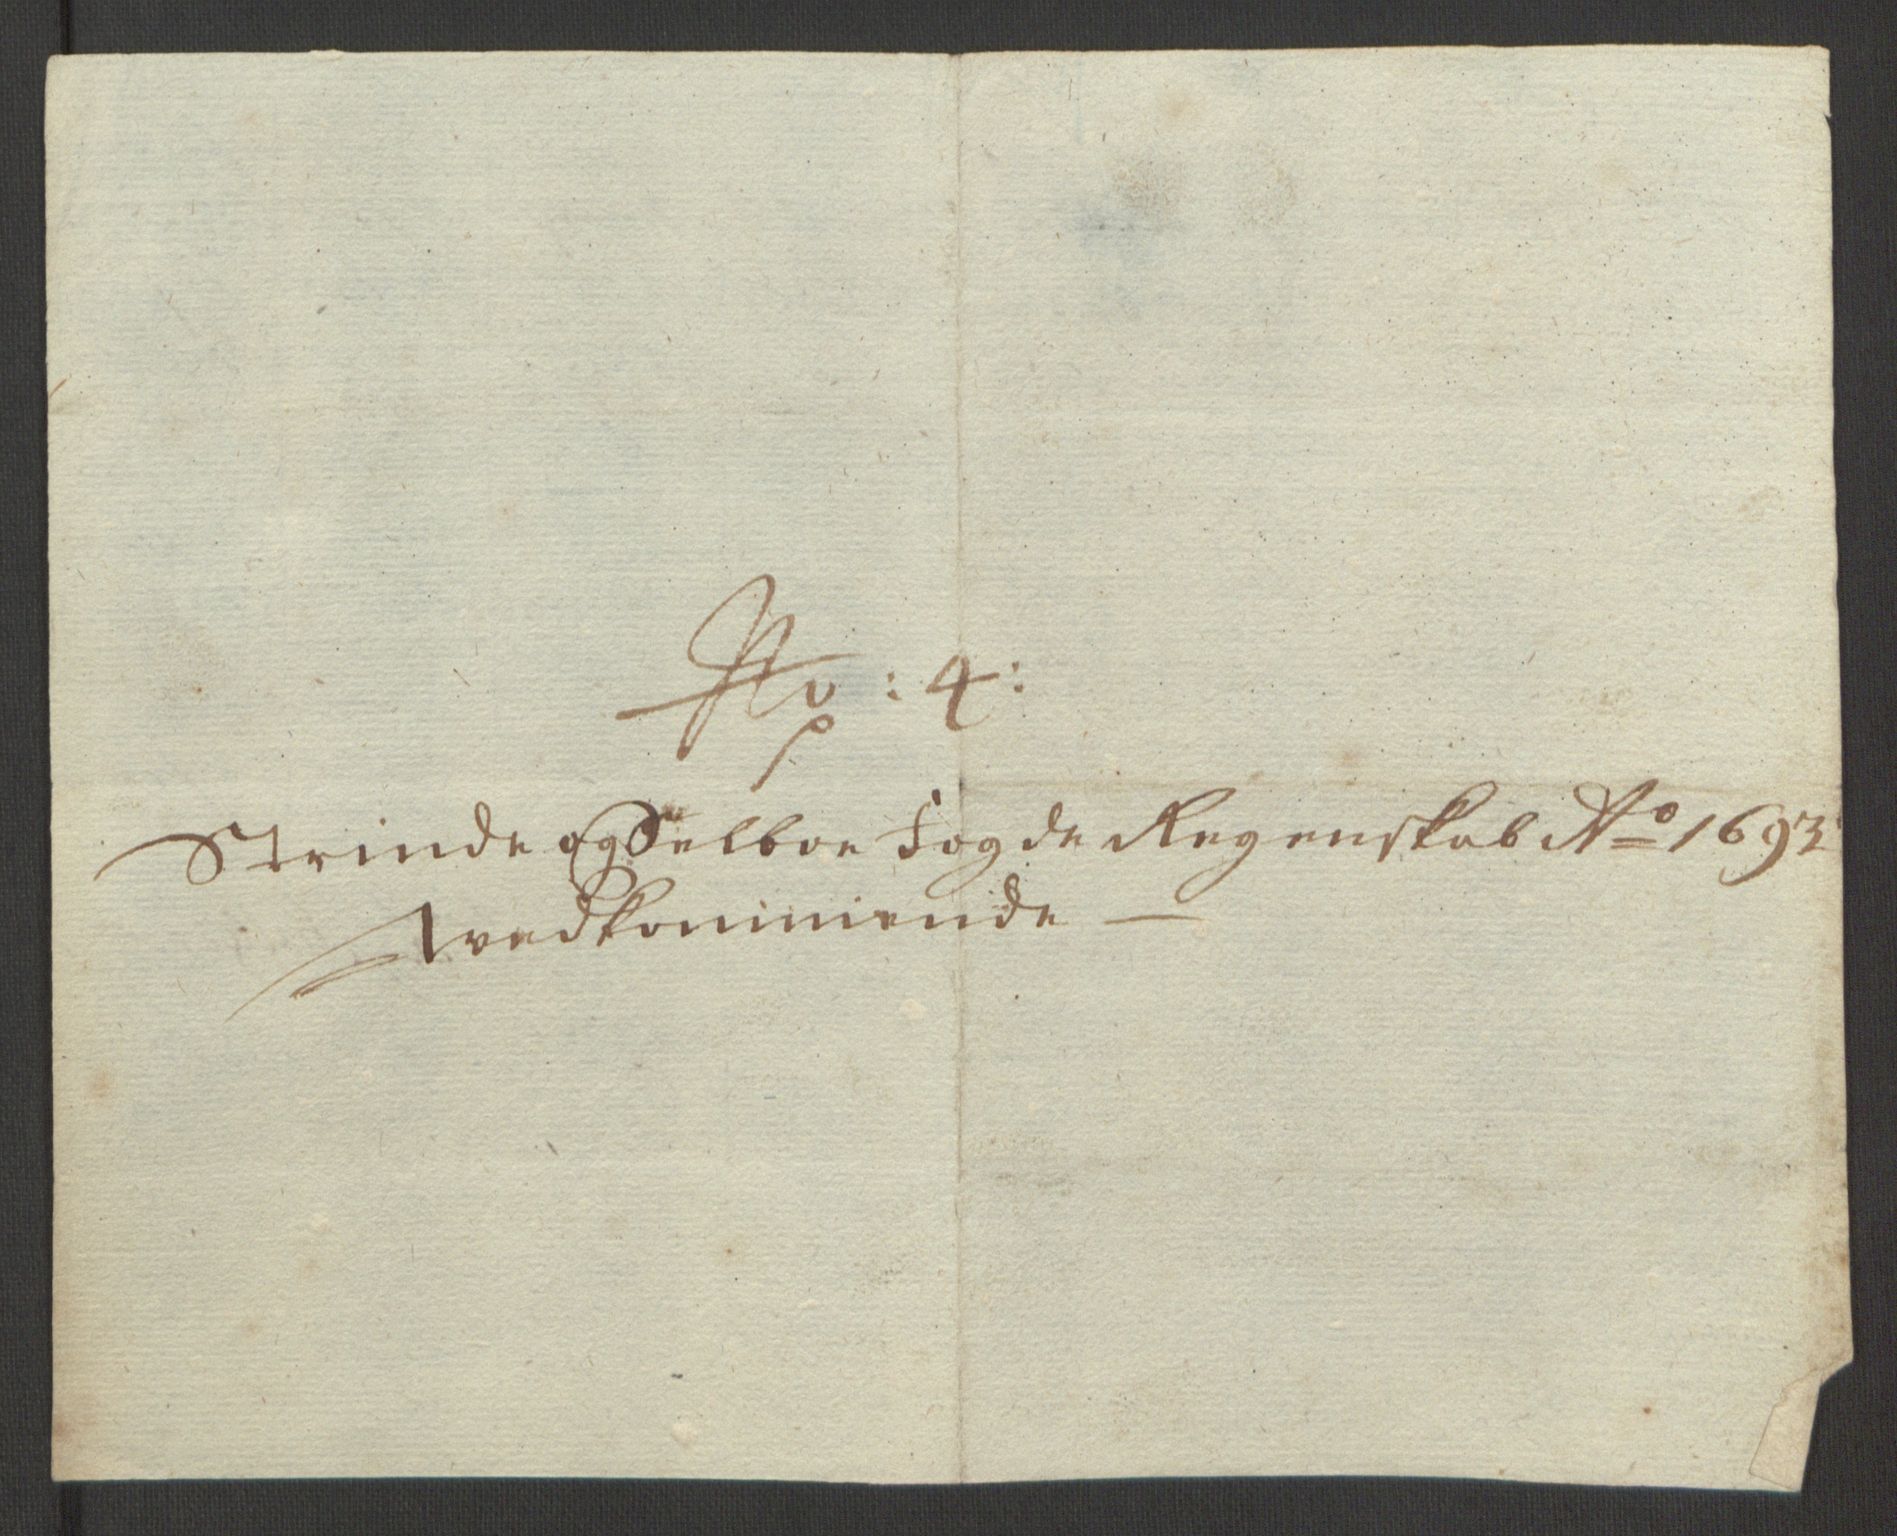 No: 4:
Strinde og Selboe Fogde Regenskab Ao 1693
Vedkommende —